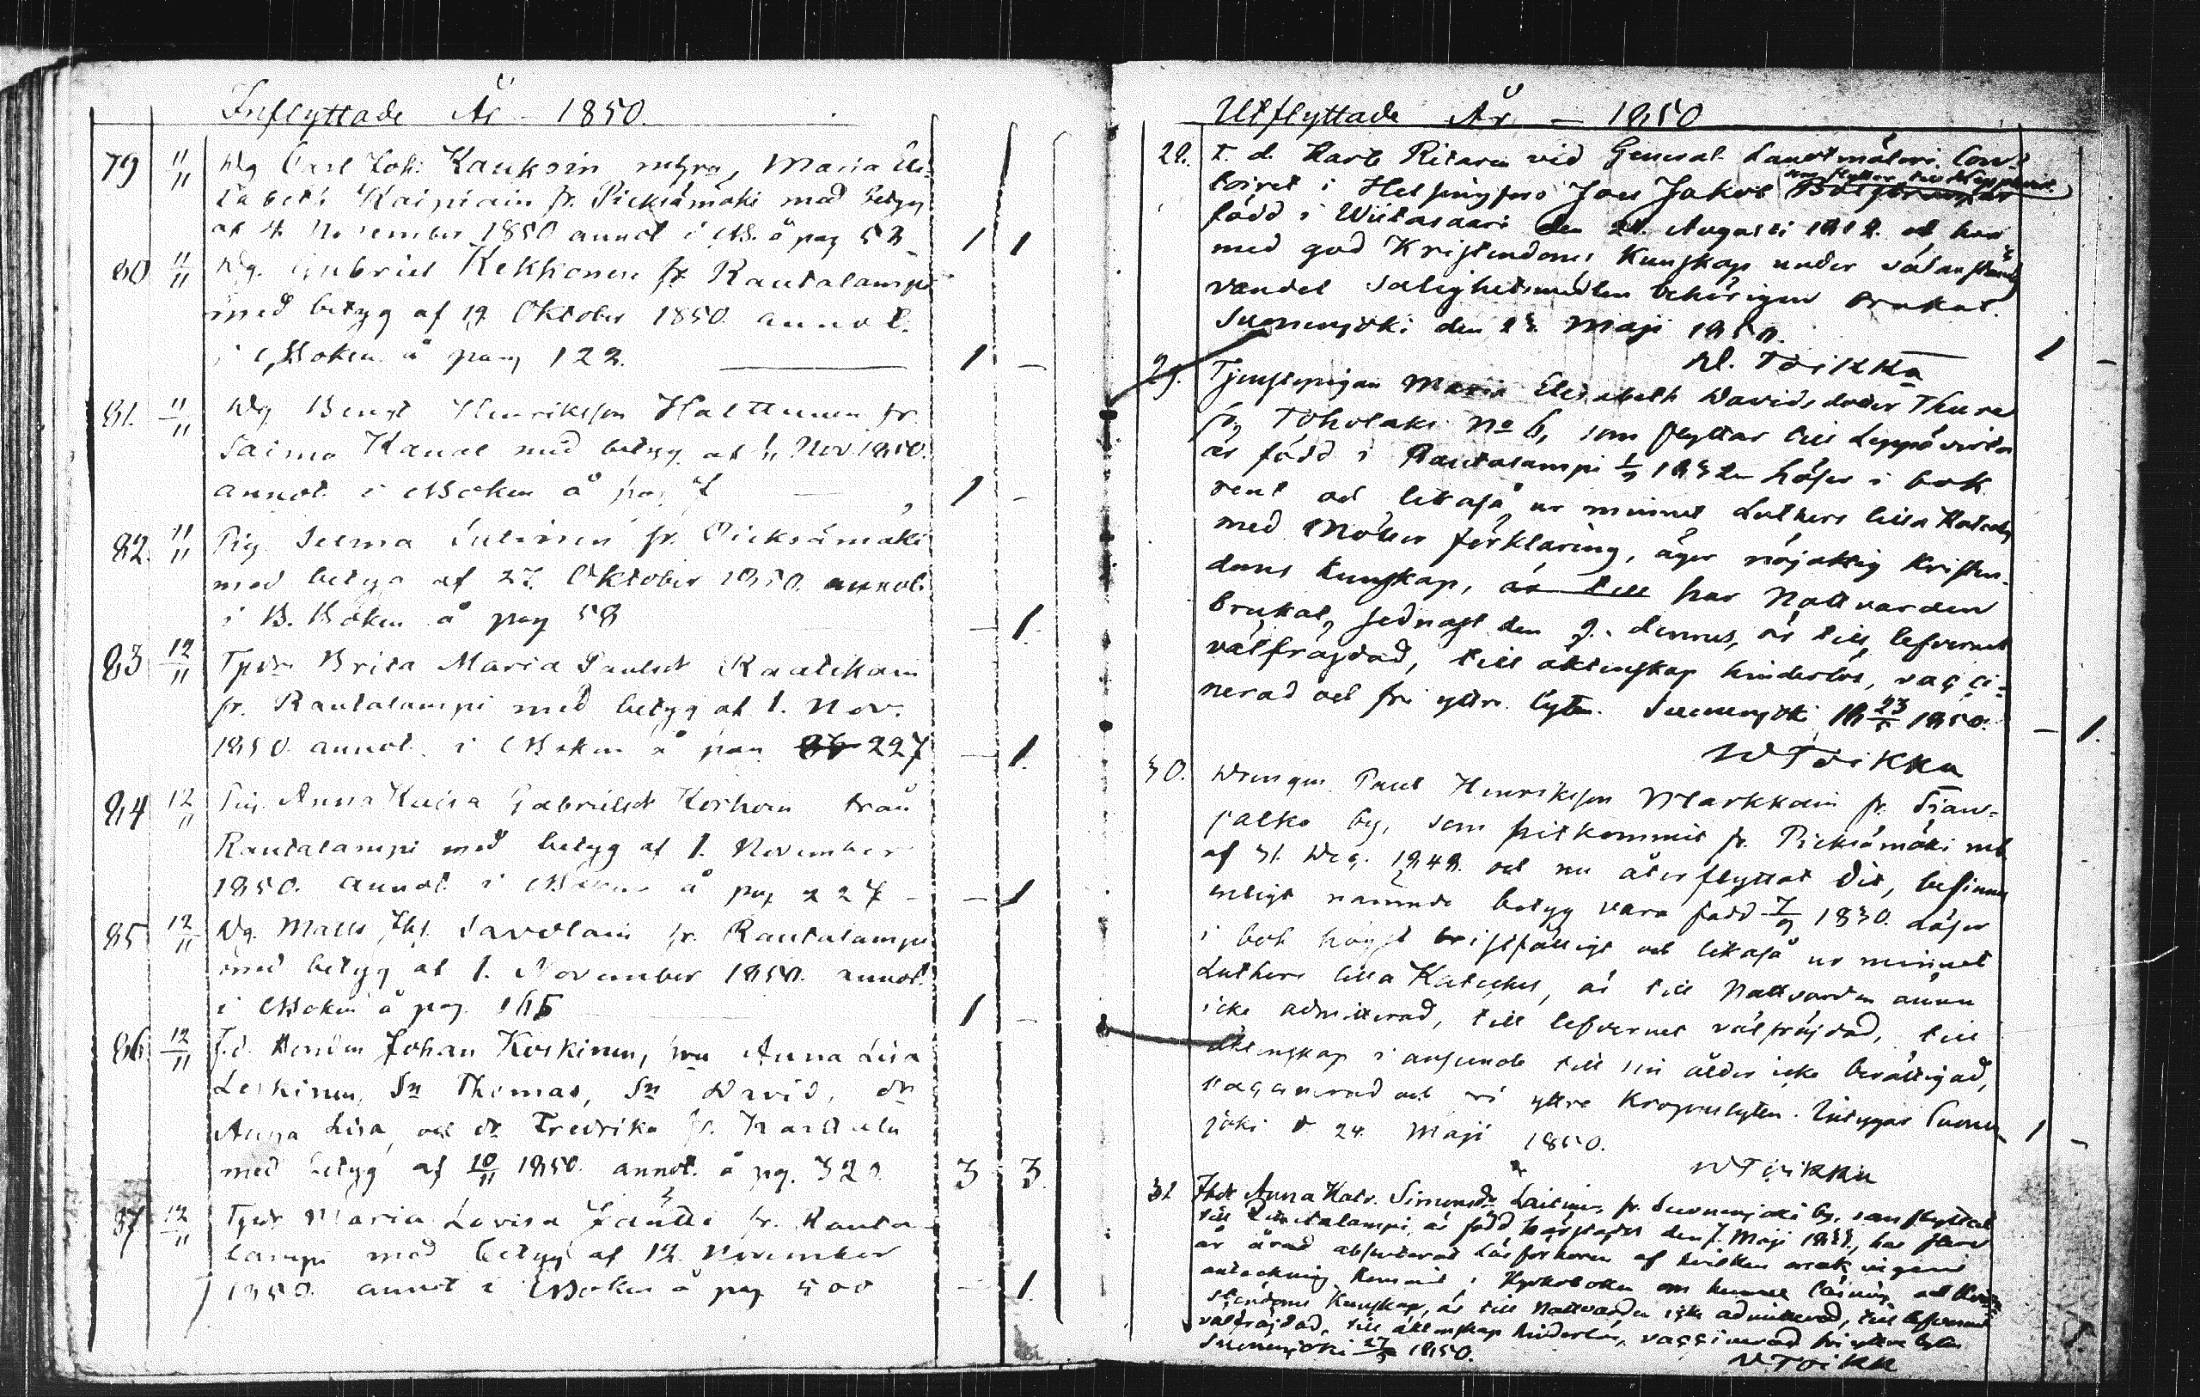 Inflyttade År 1850.
79 11/11 Dg Carl Joh. Kauksin m hru, Maria Eli-
sabeth Kaipiain fr. Pieksämäki med betyg
af 4 November 1850 annot i NB. å pag 53 1 1
80 11/11 Dg. Gabriel Kekkonen fr Rautalampi
med betyg af 19 Oktober 1850. annot.
i NBoken å pag 122. 1 –
81. 11/11 Dg Bengt Henriksson Halttunen fr.
Saima Kanal med betyg af Nov. 1850.
annot. i NBoken å pag 1 –
82. 11/11 Pig. Selma fr. Pieksämäki
med betyg af 27. Oktober 1850. annot.
i B. Boken å pag 58 – 1.
83 12/11 Tjdr Brita Maria Paulsdr Raatikain
fr. Rautalampi med betyg af 1. Nov.
1850 annot. i NBoken å pag 227 – 1.
84 12/11 Pig. Anna Kaisa Gabrielsdr Korhoin från
Rautalampi med betyg af 1. November
1850. annot i NBoken å pag 227 – – 1
85 12/11 Dg. Matts Savolain fr. Rautalampi
med betyg af 1. November 1850. annot.
i NBoken å pag. 1 –
86 12/11 f.d. Bonden Johan Koskinen, hru Anna Lisa
Leskinen, Sn Thomas, Sn David, dr
Anna Lisa, och dr Fredrika fr. Karttula
med betyg af 10/11 1850. annot. å pag. 32 3 3.
87 12/11 Tjdr Maria Lovisa Jäntti fr. Rauta-
lampi med betyg af 12 November
1850. annot i NBoken å pag 500 – 1.
Utflyttade År – 1850
28. T. d. Kart Ritaren vid General Landtmäteri Con-
som flyttar till Leppävirta
toiret i Helsingfors Joes Jakob
född i Wiitasaari den 21. Augusti 1812. och har
med god Kristendoms Kunskap under välanständig
vandel salighetsmedlen behörigen brukat.
Suonenjoki den 23. Maji 1850.
D. Toikka 1 –
29. Tjenstepigan Maria Elisabeth Davidsdotter Thure
fr. Toholaks No 6, som flyttar till Leppävirta
är född i Rautalampi 1832. Läser i bok
rent och likaså ur minnet Luthers lilla Kateches
med Möllers förklaring, äger nöjaktig Kristen-
doms Kunskap, är till har Nattvarden
brukat, sednast den 9. dennes, är till lefvernet
välfräjdad, till äktenskap hinderlös, vacci-
nerad och fri yttre lyten. Suonenjoki 23/5 1850.
D Toikka – 1.
30. Drängen Paul Henriksson Markkain fr.
jalka by, som hitkommit fr. Pieksämäki
af 31. Dec. 1848. och nu återflyttat dit, befinnes
enligt nämnde betyg vara född 1830. Läser
i bok högst bristfälligt och likaså ur minnet
Luthers lilla Kateches, är till Nattvarden ännu
icke admitterad, till lefvernet välfräjdad, till
äktenskap i anseende till sin ålder icke berättigad,
vaccinerad och fri yttre Kroppslyten. Intygar Suonen-
joki d 24. Maji 1850.
D Toikka 1 –
31 Anna Katr. Simonsdr Laitinen, fr. Suonenjoki by, som flyttat
till Rautalampi, är född härstädes den 7. Maji, har förra
år absenterat Läsförhören af hvilken orsak ingen
anteckning kommit i Kyrkoboken om hennes läsning och Kri-
stendoms Kunskap, är till Nattvarden icke admitterad, till lefvernet
välfräjdad, till äktenskap hinderlös, vaccinerad fri yttre lyten
Suonenjoki 27/5 1850.
D Toikka